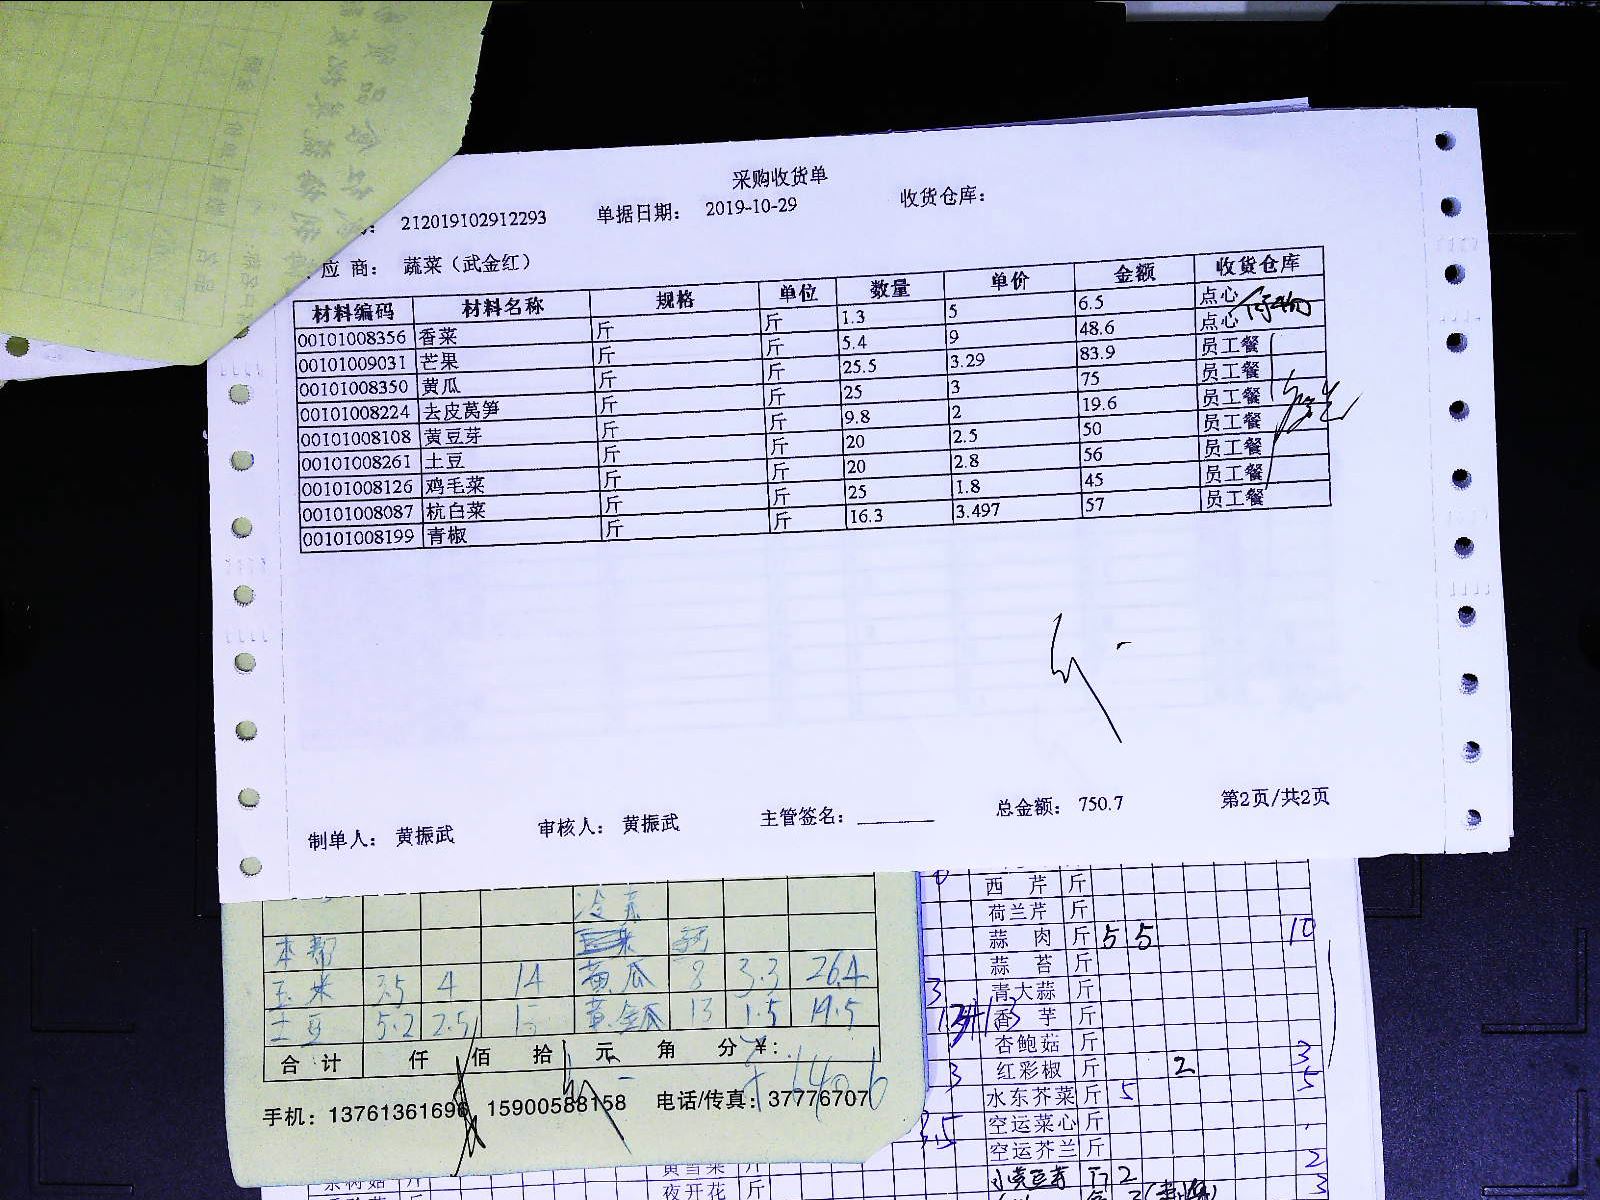 采购收货单
212019102912293 单据日期： 2019-10-29 收货仓库：
应 商： 蔬菜（武金红）
材料编码 材料名称 规格 单位 数量 单价 金额 收货仓库
00101008356 香菜 斤 斤 1.3 5 6.5 点心
00101009031 芒果 斤 斤 5.4 9 48.6 点心
00101008350 黄瓜 斤 斤 25.5 3.29 83.9 员工餐
00101008224 去皮莴笋 斤 斤 25 3 75 员工餐
00101008108 黄豆芽 斤 斤 9.8 2 19.6 员工餐
00101008261 土豆 斤 斤 20 2.5 50 员工餐
00101008126 鸡毛菜 斤 斤 20 2.8 56 员工餐
00101008087 杭白菜 斤 斤 25 1.8 45 员工餐
00101008199 青椒 斤 斤 16.3 3.497 57 员工餐
制单人： 黄振武 审核人： 黄振武 主管签名： 总金额： 750.7 第2页/共2页
本帮
玉米 3.5 4 14 黄瓜 8 3.3 26.4
土豆 5.2 2.5 13 黄金瓜 13 1.5 19.5
合 计 仟 佰 拾 元 角 分 ¥：
手机：13761361696 15900588158 电话/传真：37776707
西 芹 斤
荷兰芹 斤
蒜 肉 斤 5 5 10
蒜 苔 斤
青大蒜 斤
香 芋 斤
杏鲍菇 斤
红彩椒 斤 2 3
水东芥菜 斤 5 5
空运菜心 斤
空运芥兰 斤
小黄豆芽 斤 2 2
夜开花 斤